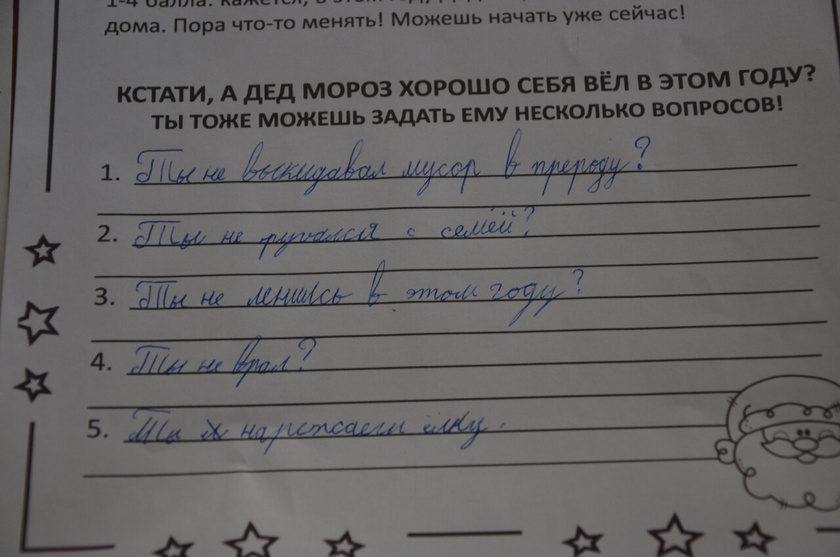 дома. Пора что-то менять! Можешь начать уже сейчас!
КСТАТИ, А ДЕД МОРОЗ ХОРОШО СЕБЯ ВЁЛ В ЭТОМ ГОДУ?
ТЫ ТОЖЕ МОЖЕШЬ ЗАДАТЬ ЕМУ НЕСКОЛЬКО ВОПРОСОВ!
1. Ты не выкидавал мусор в прероду?
2. Ты не ругался с семей?
3. Ты не ленись в этом году?
4. Ты не врал?
5. Ты наресжаеш ёлку.